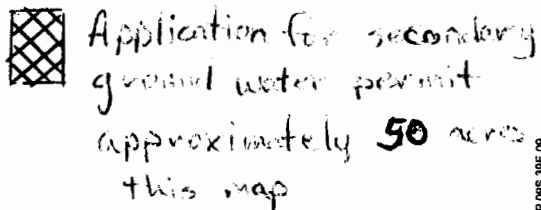 Application for secondary
ground water permit
approximately 50 acres
this map